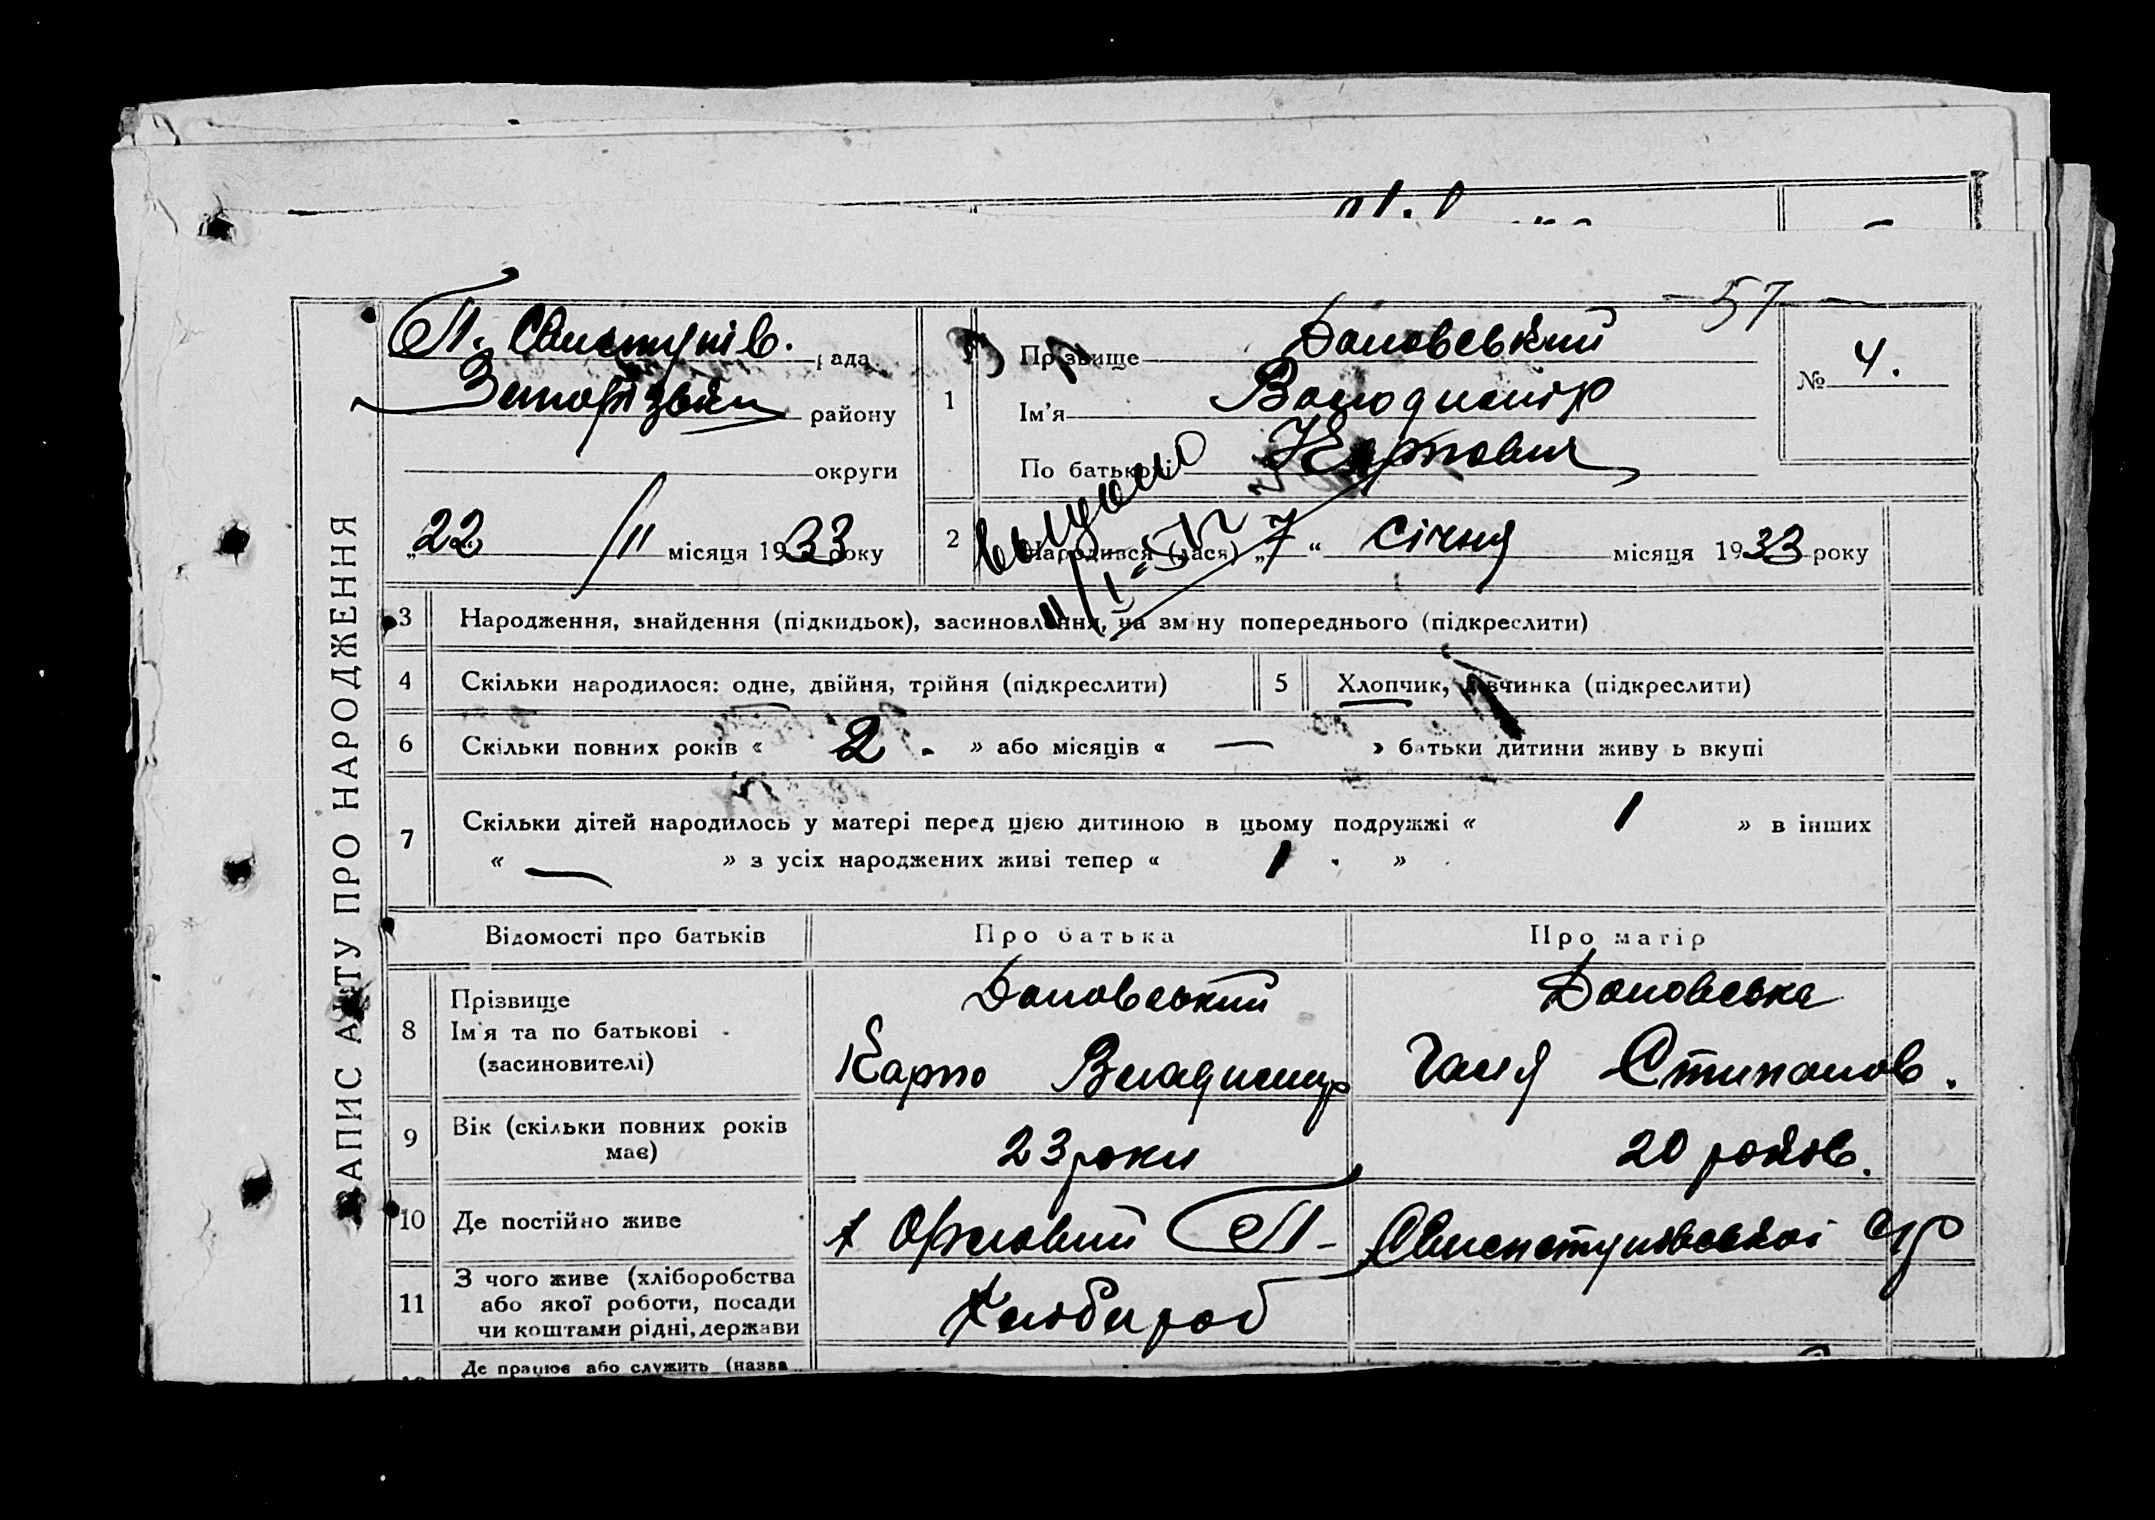 57
П. Свистунів. рада
Запорізький району
округи
„22 /II місяця 1933 року
ЗАПИС АКТУ ПРО НАРОДЖЕННЯ
1 Прізвище Доновський
Ім'я Володимир
По батькові Карпович
№ 4.
2 Народився (лася) „7“ січня місяця 1933 року
3 Народження, знайдення (підкидьок), засиновлення, на зміну попереднього (підкреслити)
4 Скільки народилося: одне, двійня, трійня (підкреслити)
5 Хлопчик, дівчинка (підкреслити)
6 Скільки повних років « 2. » або місяців « — » батьки дитини живуть вкупі
7 Скільки дітей народилось у матері перед цією дитиною в цьому подружжі « 1 » в інших
« — » з усіх народжених живі тепер « 1. »
Відомості про батьків Про батька Про матір
8 Прізвище Доновський Доновська
Ім'я та по батькові Карпо Владимир Ганя Стипанов.
(засиновителі)
9 Вік (скільки повних років має) 23 роки 20 років.
10 Де постійно живе х Орловий П-Свистуновської с/р
11 З чого живе (хліборобства
або якої роботи, посади
чи коштами рідні, держави Хлібороб
Де працює або служить (назва